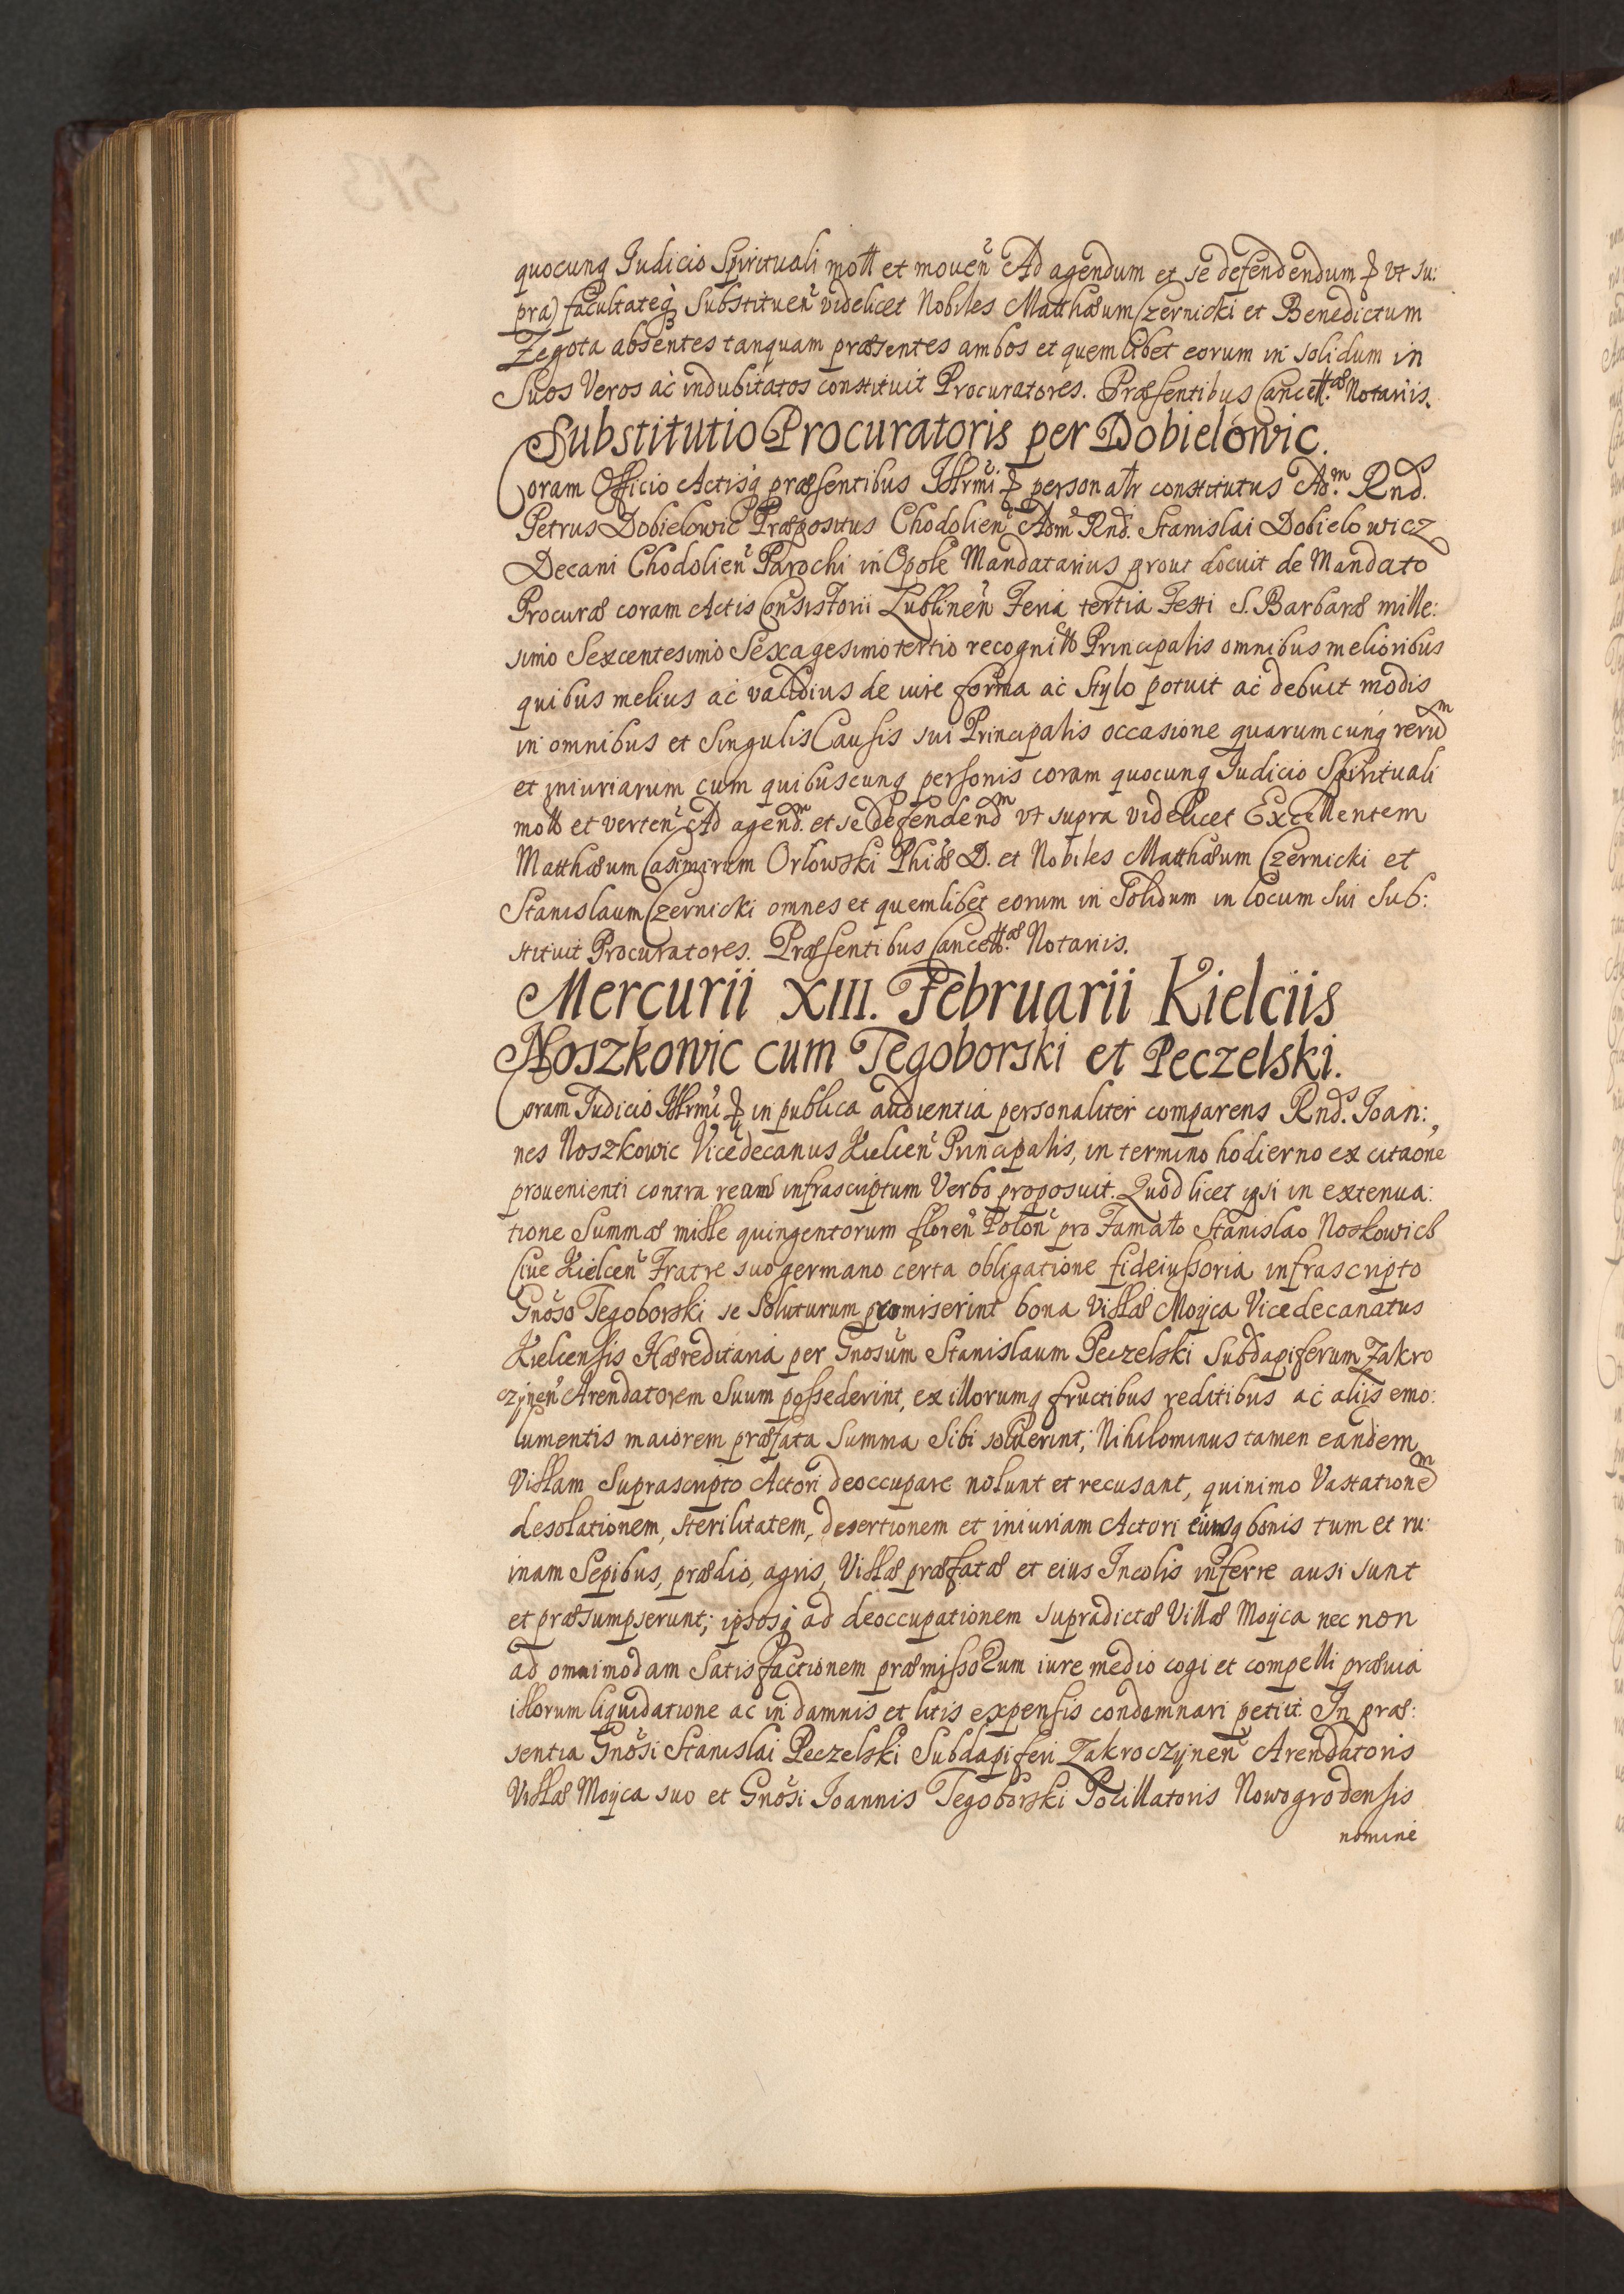 quocunq Iudicio Spirituali mott et mouen Ad agendum et se defendendum ut su:
pra) facultateq Substituen videlicet Nobiles Matthæum Czernicki et Benedictum
Zegota absentes tanquam præsentes ambos et quemlibet eorum in solidum in
Suos Veros ac indubitatos constituit Procuratores. Præsentibus Cancell.æ Notariis.
Substitutio Procuratoris per Dobielowic.
Coram Officio Actisq præsentibus Illrmi personalr constitutus Ad.m Rnd.
Petrus Dobielowic Præpositus Chodolien Adm Rnd. Stanislai Dobielowicz
Decani Chodolien Parochi in Opole Mandatarius prout docuit de Mandato
Procuræ coram Actis Consistorii Lublinen Feria tertia Festi S. Barbaræ mille:
simo Sexcentesimo Sexagesimo tertio recognitto Principalis omnibus melioribus
quibus melius ac validius de iure forma ac Stylo potuit ac debuit modis
in omnibus et Singulis Causis sui Principalis occasione quarumcunq rerum
et iniuriarum cum quibuscunq personis coram quocunq Iudicio Spirituali
motto et verten Ad agend. et se defendend vt supra videlicet Excellentem
Matthæum Casimirum Orlowski Phiæ D. et Nobiles Matthæum Czernicki et
Stanislaum Czernicki omnes et quemlibet eorum in Solidum in locum Sui Sub:
stituit Procuratores. Præsentibus Cancell.æ Notariis.
Mercurii XIII. Februarii Kielciis
Noszkowic cum Tegoborski et Peczelski.
Coram Iudicio Illrmi in publica audientia personaliter comparens Rnd. Ioan:
nes Noszkowic Vicedecanus Kielcen Principalis, in termino hodierno ex citaone
prouenienti contra reum infrascriptum Verbo proposuit. Quod licet ipsi in extenua:
tione Summæ mille quingentorum floren Polon pro Famato Stanislao Noskowicz
Ciue Kielcen Fratre suo germano certa obligatione fideiussoria infrascripto
Gnoso Tegoborski se Soluturum promiserint bona Villæ Moyca Vicedecanatus
Kielcensis Hæreditaria per Gnosum Stanislaum Peczelski Subdapiferum Zakro
czynen Arendatorem Suum possederint, ex illorumq fructibus reditibus ac aliis emo:
lumentis maiorem præfata Summa Sibi soluerint; Nihilominus tamen eandem
Villam Suprascripto Actori deoccupare nolunt et recusant, quinimo Vastationem
desolationem, sterilitatem, desertionem et iniuriam Actori eiusq bonis tum et ru:
inam Sepibus, prædio, agris, Villæ præfatæ et eius Incolis inferre ausi sunt
et præsumpserunt; ipsosq ad deoccupationem supradictæ Villæ Moyca nec non
ad omnimodam Satisfactionem præmissorum iure medio cogi et compelli præuia
illorum liquidatione ac in damnis et litis expensis condemnari petiit. In præ:
sentia Gnosi Stanislai Peczelski Subdapiferi Zakroczynen Arendatoris
Villæ Moyca suo et Gnosi Ioannis Tegoborski Pocillatoris Nowogrodensis
nomine